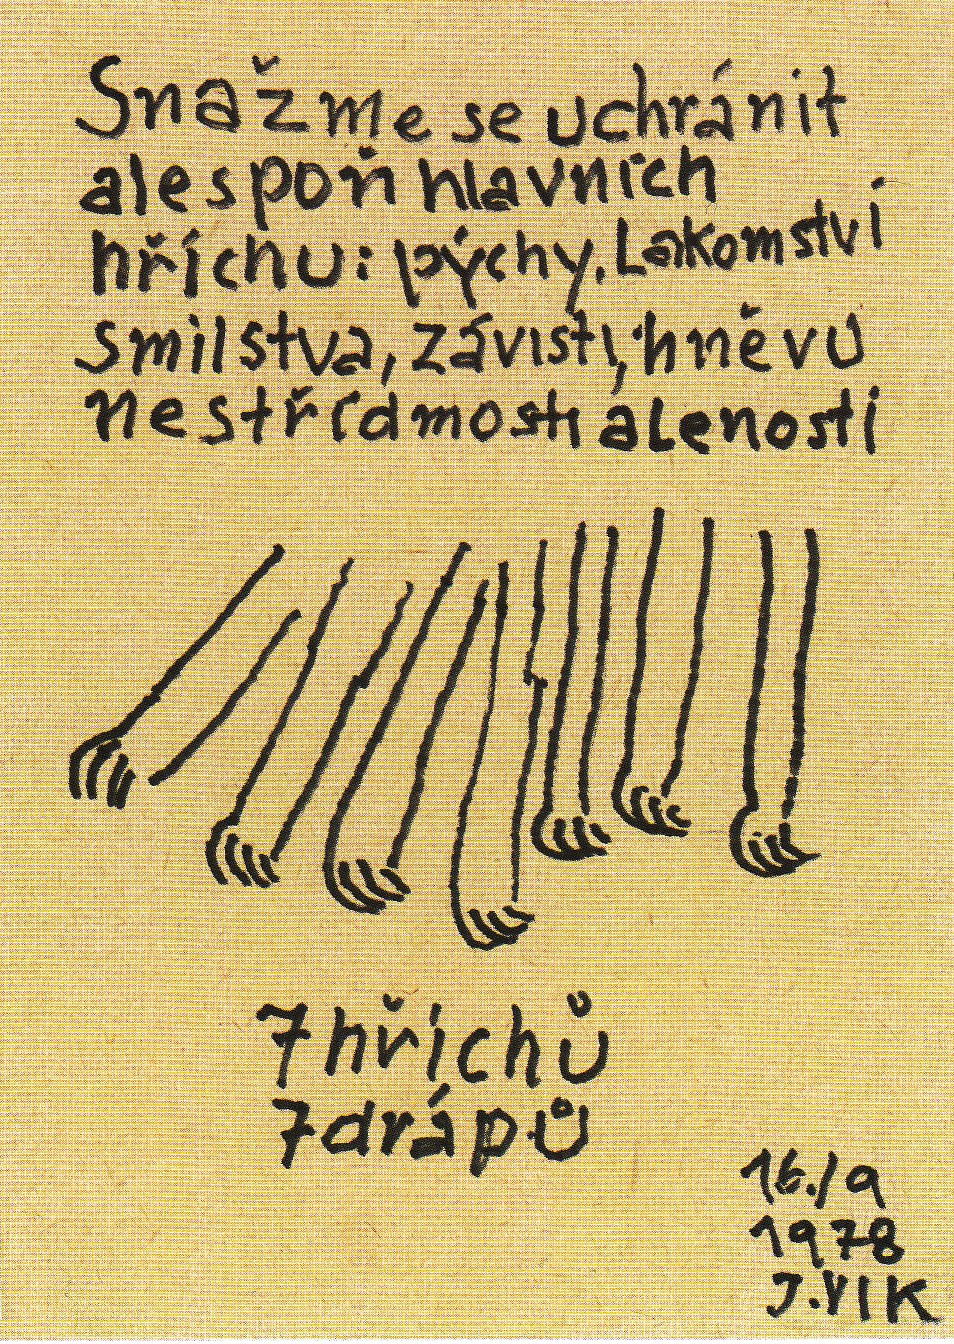 Snažme se uchránit
alespoň hlavních
hříchu: pýchy, Lakomství
smilstva, závisti, hněvu
nestřídmosti a lenosti
7 hříchů
7 drápů
16./9
1978
J. VIK